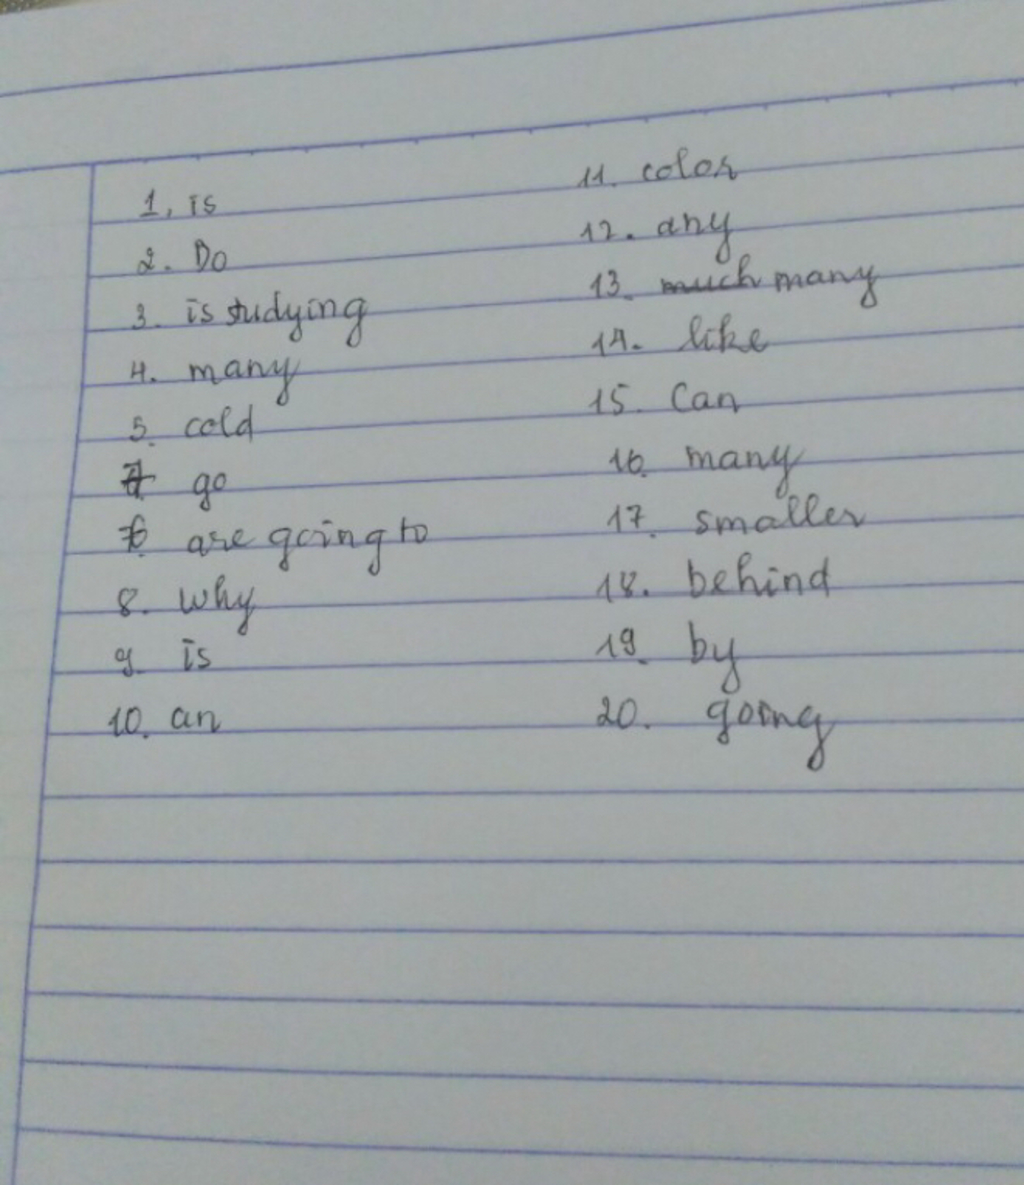 1, is
2. Do
3. is studying
4. many
5. cold
7 go
6 are going to
8. Why
9. is
10. an
11. color
12. any
13. much many
14. like
15. Can
16. many
17. smaller
18. behind
19. by
20. going